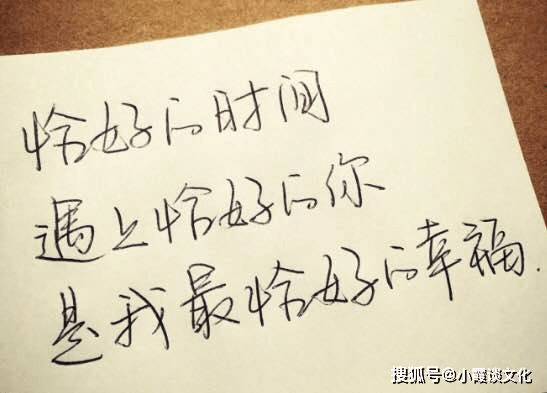 恰好的时间
遇上恰好的你
是我最恰好的幸福.
搜狐号@小霞谈文化